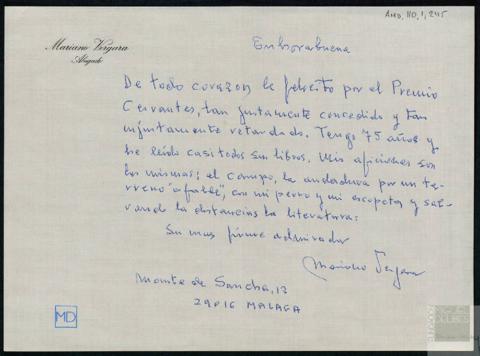 AMD, 110, 1, 245
Mariano Vergara
Abogado
Enhorabuena
De todo corazon le felicito por el Premio
Cervantes, tan justamente concedido y tan
injustamente retardado. Tengo 75 años y
he leido casi todos sus libros. Mis aficiones son
las mismas; el campo, la andadura por un te-
rreno "afable", con mi perro y mi escopeta y sal-
vando las distancias la literatura:
Su mas firme admirador
Mariano Vergara
Monte de Sancha, 13
29016 MALAGA
MD